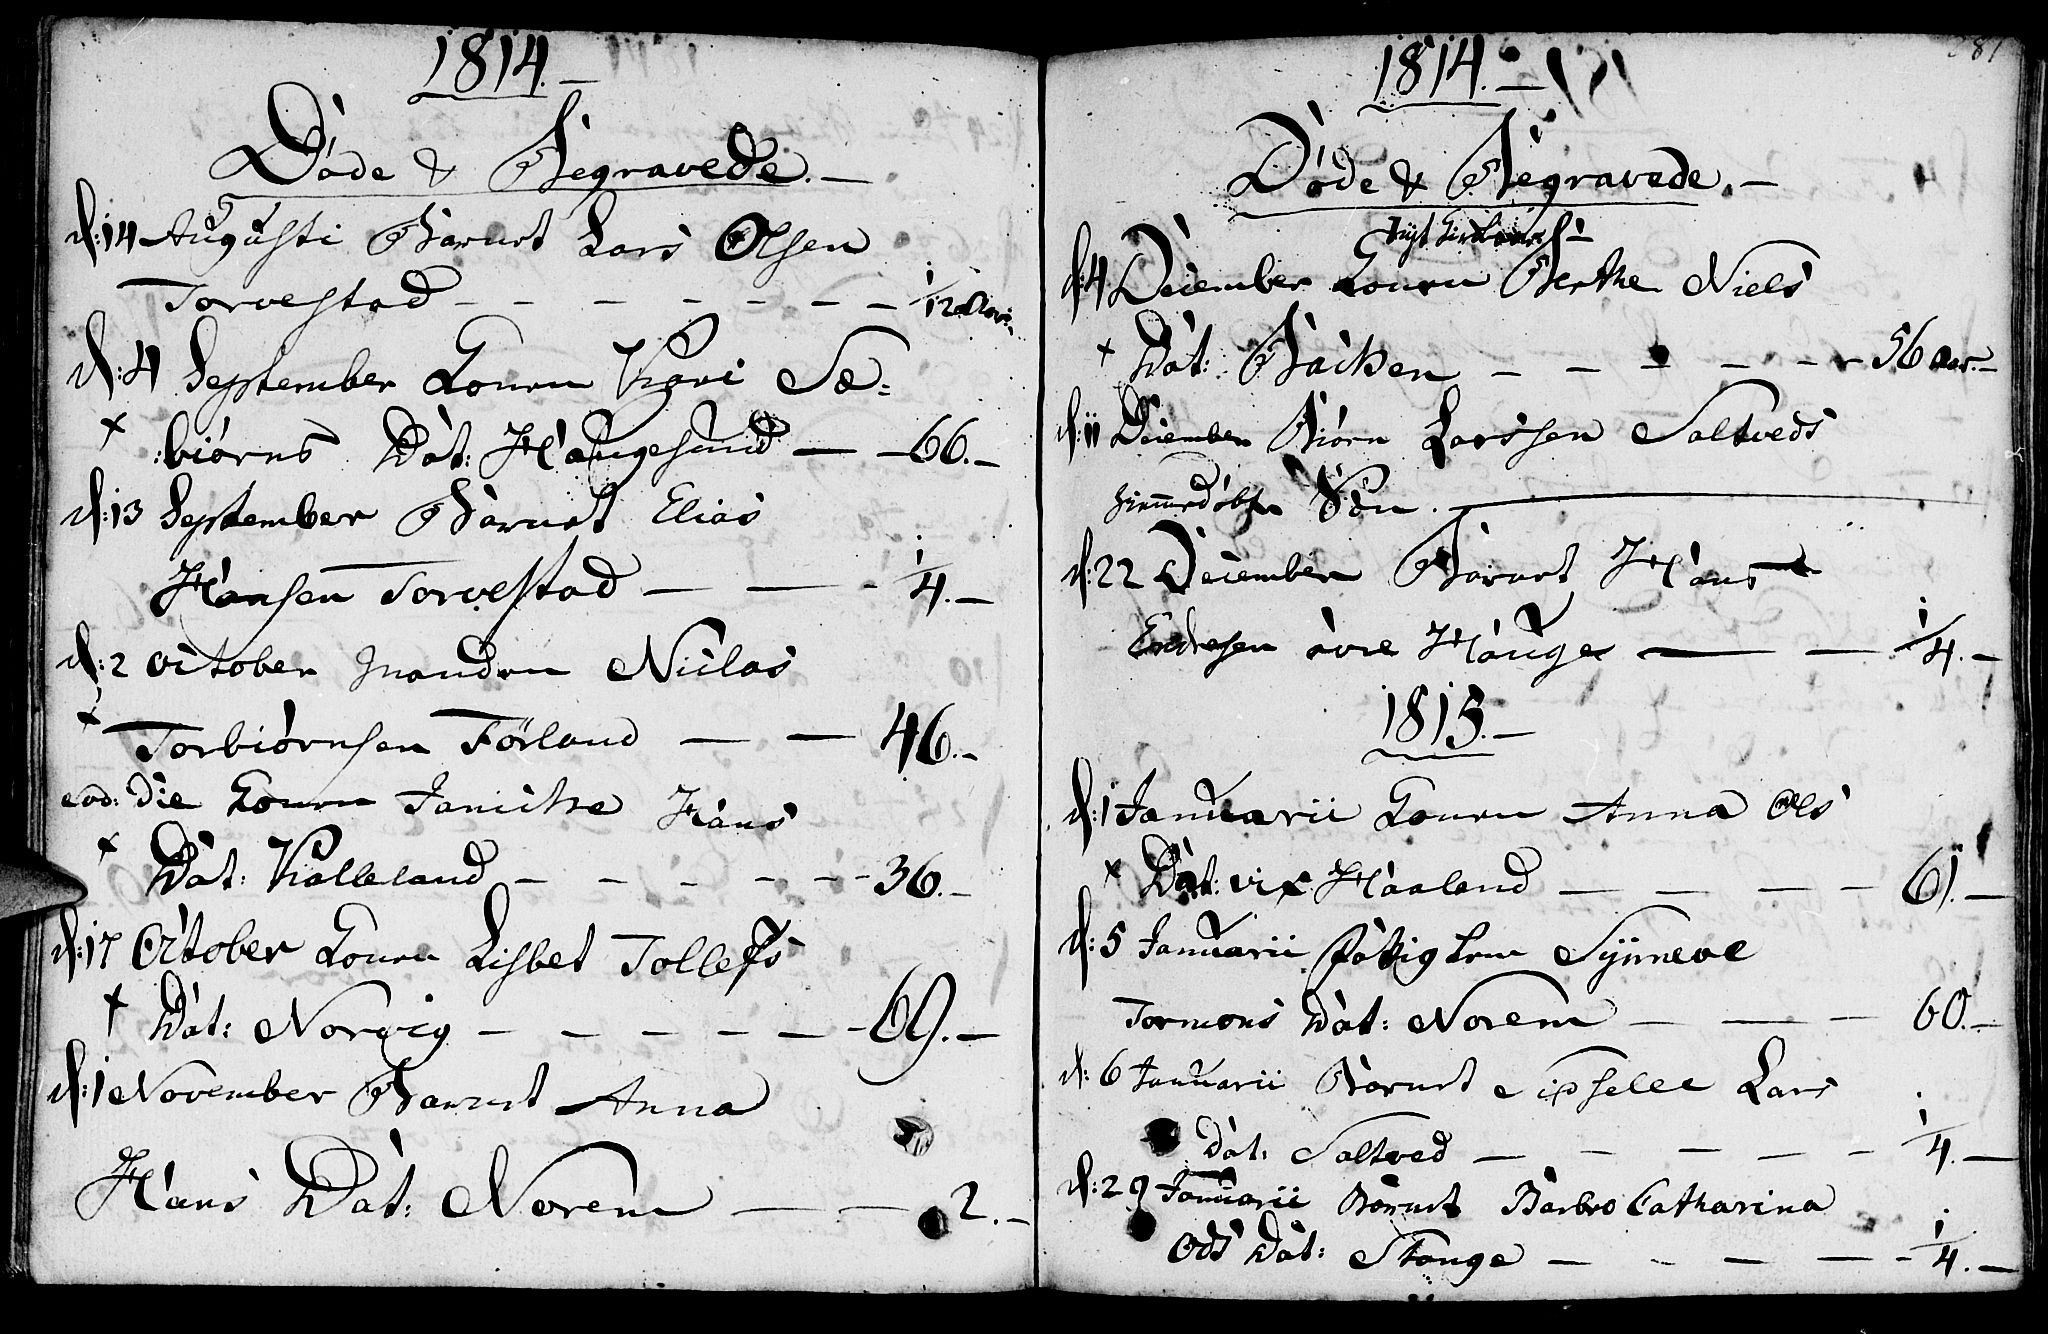 1814.
Døde & Begravede.
d: 14 Augusti Barnet Lars Olsen
Torvestad 1/12
d: 4 September Konen Kari Sæ=
:biørns Dat: Haugesund 66.
d: 13 September Barnet Elias
Hansen Torvestad 1/4.
d: 2 October Manden Niclas
Torbiørnsen Førland 46.
eod: die Konen Janiche Hans
Dat: Kalleland 36.
d: 17 October Konen Lisbet Tollefs
Dat: Norvig 69.
d: 1 November Barnet Anna
Hans Dat: Norem 2.
381
1814.
Døde & Begravede.
d: 4 December Konen Berthe Niels
Dat: Backen 56 aar.
d: 11 December Biørn Larssen Saltveds
hiemmedøbte Søn.
d: 22 December Barnet Hans
Endresen øvre Hauge 1/4.
1815.
d: 1 Januarii Konen Anna Ols
Dat: Haaland 61.
d: 5 Januarii Fattig Synneve
Tormons Dat: Norem 60.
d: 6 Januarii Barnet Sidselle Lars
Dat: Saltved 1/4.
d: 29 Januarii Barnet Barbro Catharina
Ods Dat: Stange 1/4.